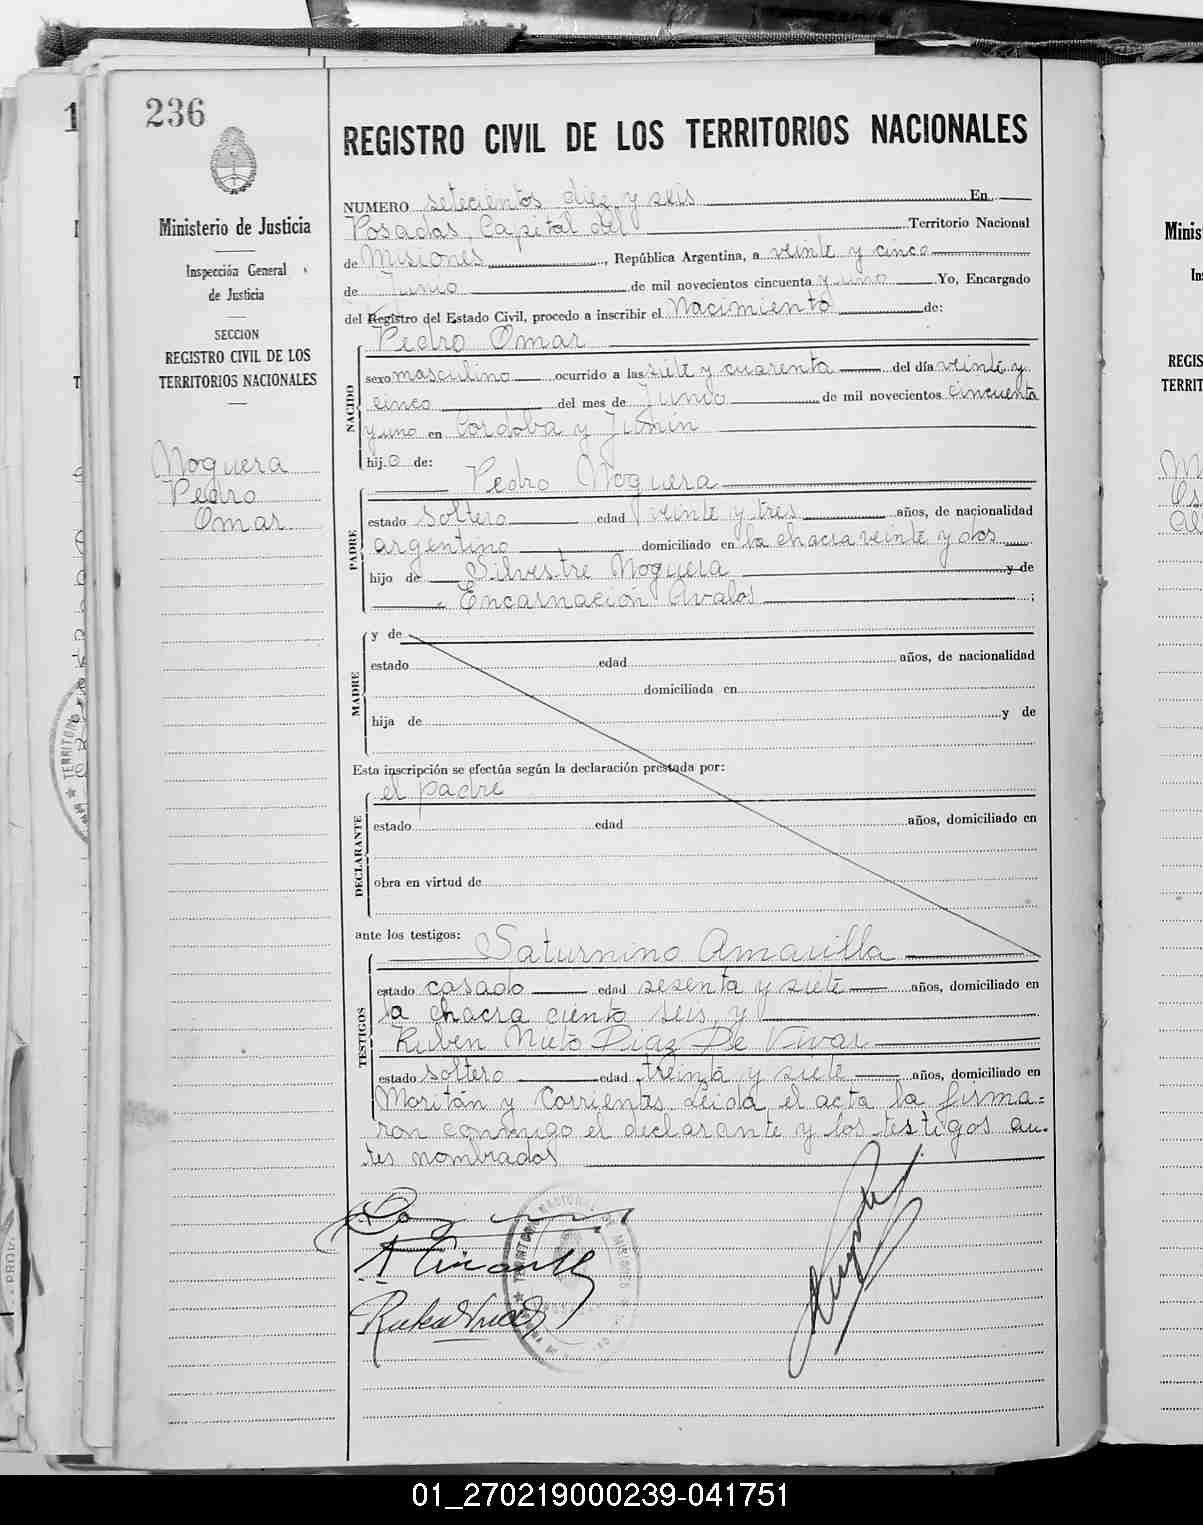 236
Ministerio de Justicia
Inspección General
de Justicia
SECCION
REGISTRO CIVIL DE LOS
TERRITORIOS NACIONALES
Noguera
Pedro
Omar
REGISTRO CIVIL DE LOS TERRITORIOS NACIONALES
NUMERO setecientos diez y seis En
Posadas, Capital del Territorio Nacional
de Misiones, República Argentina, a veinte y cinco
de Junio de mil novecientos cincuenta y uno Yo, Encargado
del Registro del Estado Civil, procedo a inscribir el Nacimiento de:
Pedro Omar
NACIDO
sexo masculino ocurrido a las siete y cuarenta del día veinte y
cinco del mes de Junio de mil novecientos cincuenta
y uno en Cordoba y Junin
hijo de:
Pedro Noguera
PADRE
estado soltero edad veinte y tres años, de nacionalidad
argentino domiciliado en la chacra veinte y dos
hijo de Silvestre Noguera y de
Encarnación Avalos ;
MADRE
y de
estado edad años, de nacionalidad
domiciliada en
hija de y de
Esta inscripción se efectúa según la declaración prestada por:
el padre
DECLARANTE
estado edad años, domiciliado en
obra en virtud de
ante los testigos:
Saturnino Amarilla
TESTIGOS
estado casado edad sesenta y siete años, domiciliado en
la chacra ciento seis, y
Ruben Nieto Diaz De Vivar
estado soltero edad treinta y siete años, domiciliado en
Moritán y Corrientes. Leida el acta la firma=
ron conmigo el declarante y los testigos an-
tes nombrados
01_270219000239-041751